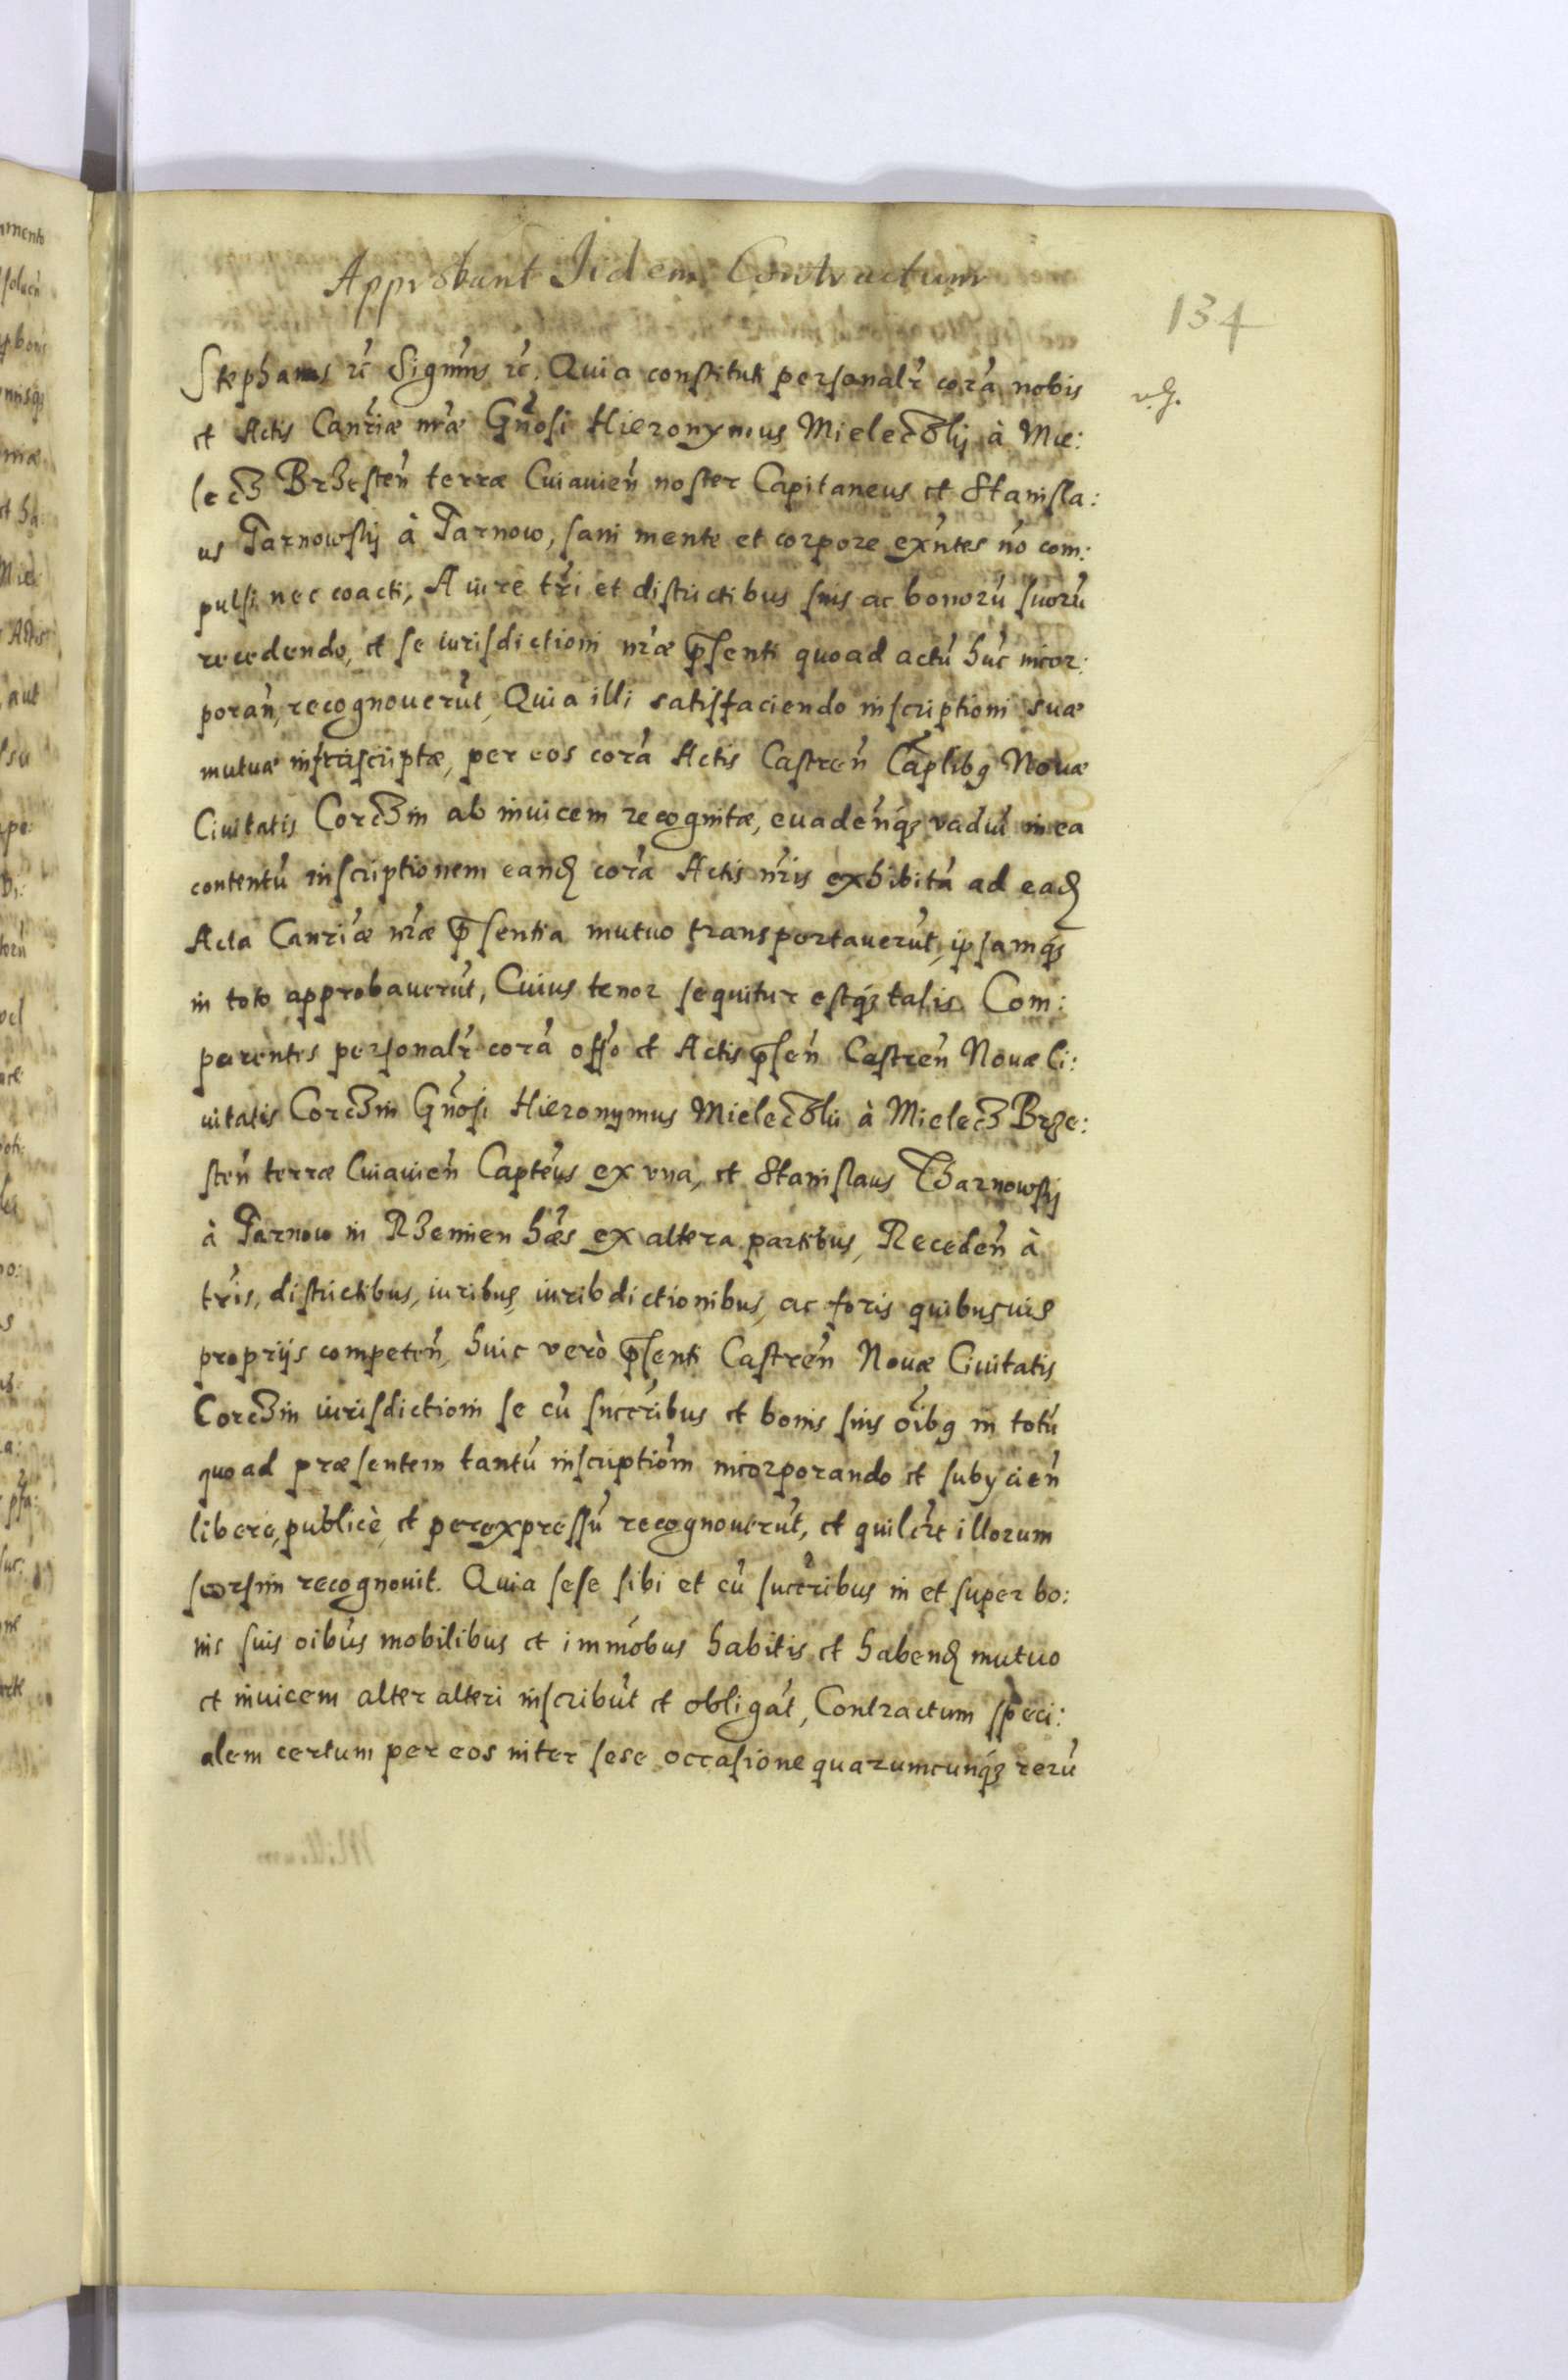 Approbant Iidem Contractum
134
Stephanus etc Signium̃s etc. Quia constituti personalr̃ corã nobis
et Actis Canr̃iæ nr̃æ Gñosi Hieronymus Mieleczkij à Mie:
lecz Brzesteñ terræ Cuiauieñ noster Capitaneus et Stanisla:
us Tarnowskij à Tarnow, sani mente et corpore exñtes nõ com:
pulsi nec coacti, A iure tr̃i et districtibus suis ac bonorũ suorũ
recedendo, et se iurisdictioni nr̃æ p̃senti quoad actũ hũc incor:
porañ, recognouerũt, Quia illi satisfaciendo inscriptioni suæ
mutuæ infrascriptæ, per eos corã Actis Castreñ Cap̃libꝫ Nouæ
Ciuitatis Corczin ab inuicem recognitæ, euadeñqꝫ vadiũ in ea
contentũ inscriptionem eandẽ corã Actis nr̃is exhibitã ad eadẽ
Acta Canr̃iæ nr̃æ p̃sentia mutuo transportauerũt, ipsamqꝫ
in toto approbauerũt, Cuius tenor sequitur estqꝫ talis. Com:
parentes personalr̃ corã offõ et Actis p̃señ Castreñ Nouæ Ci:
uitatis Corczin Gñosi Hieronymus Mieleczkii à Mielecz Brze:
steñ terræ Cuiauieñ Captẽus ex vna, et Stanislaus Tharnowskij
à Tarnow in Rzemien hæ̃s ex altera partibus, Recedeñ à
tr̃is, districtibus, iuribus, iuribdictionibus, ac foris quibusuis
proprijs competeñ, huic verò p̃senti Castreñ Nouæ Ciuitatis
Corczin iurisdictioni se cũ succr̃ibus et bonis suis oĩbꝫ in totũ
quoad præsentem tantũ inscriptiõm incorporando et subycieñ
libere, publicè, et per expressũ recognouerũt, et quilẽt illorum
seorsim recognouit. Quia sese sibi et cũ succr̃ibus in et super bo:
nis suis oĩbus mobilibus et immõbus habitis et habendẽ mutuo
et inuicem alter alteri inscribũt et obligãt, Contractum speci:
alem certum per eos inter sese occasione quarumcunqꝫ rerũ